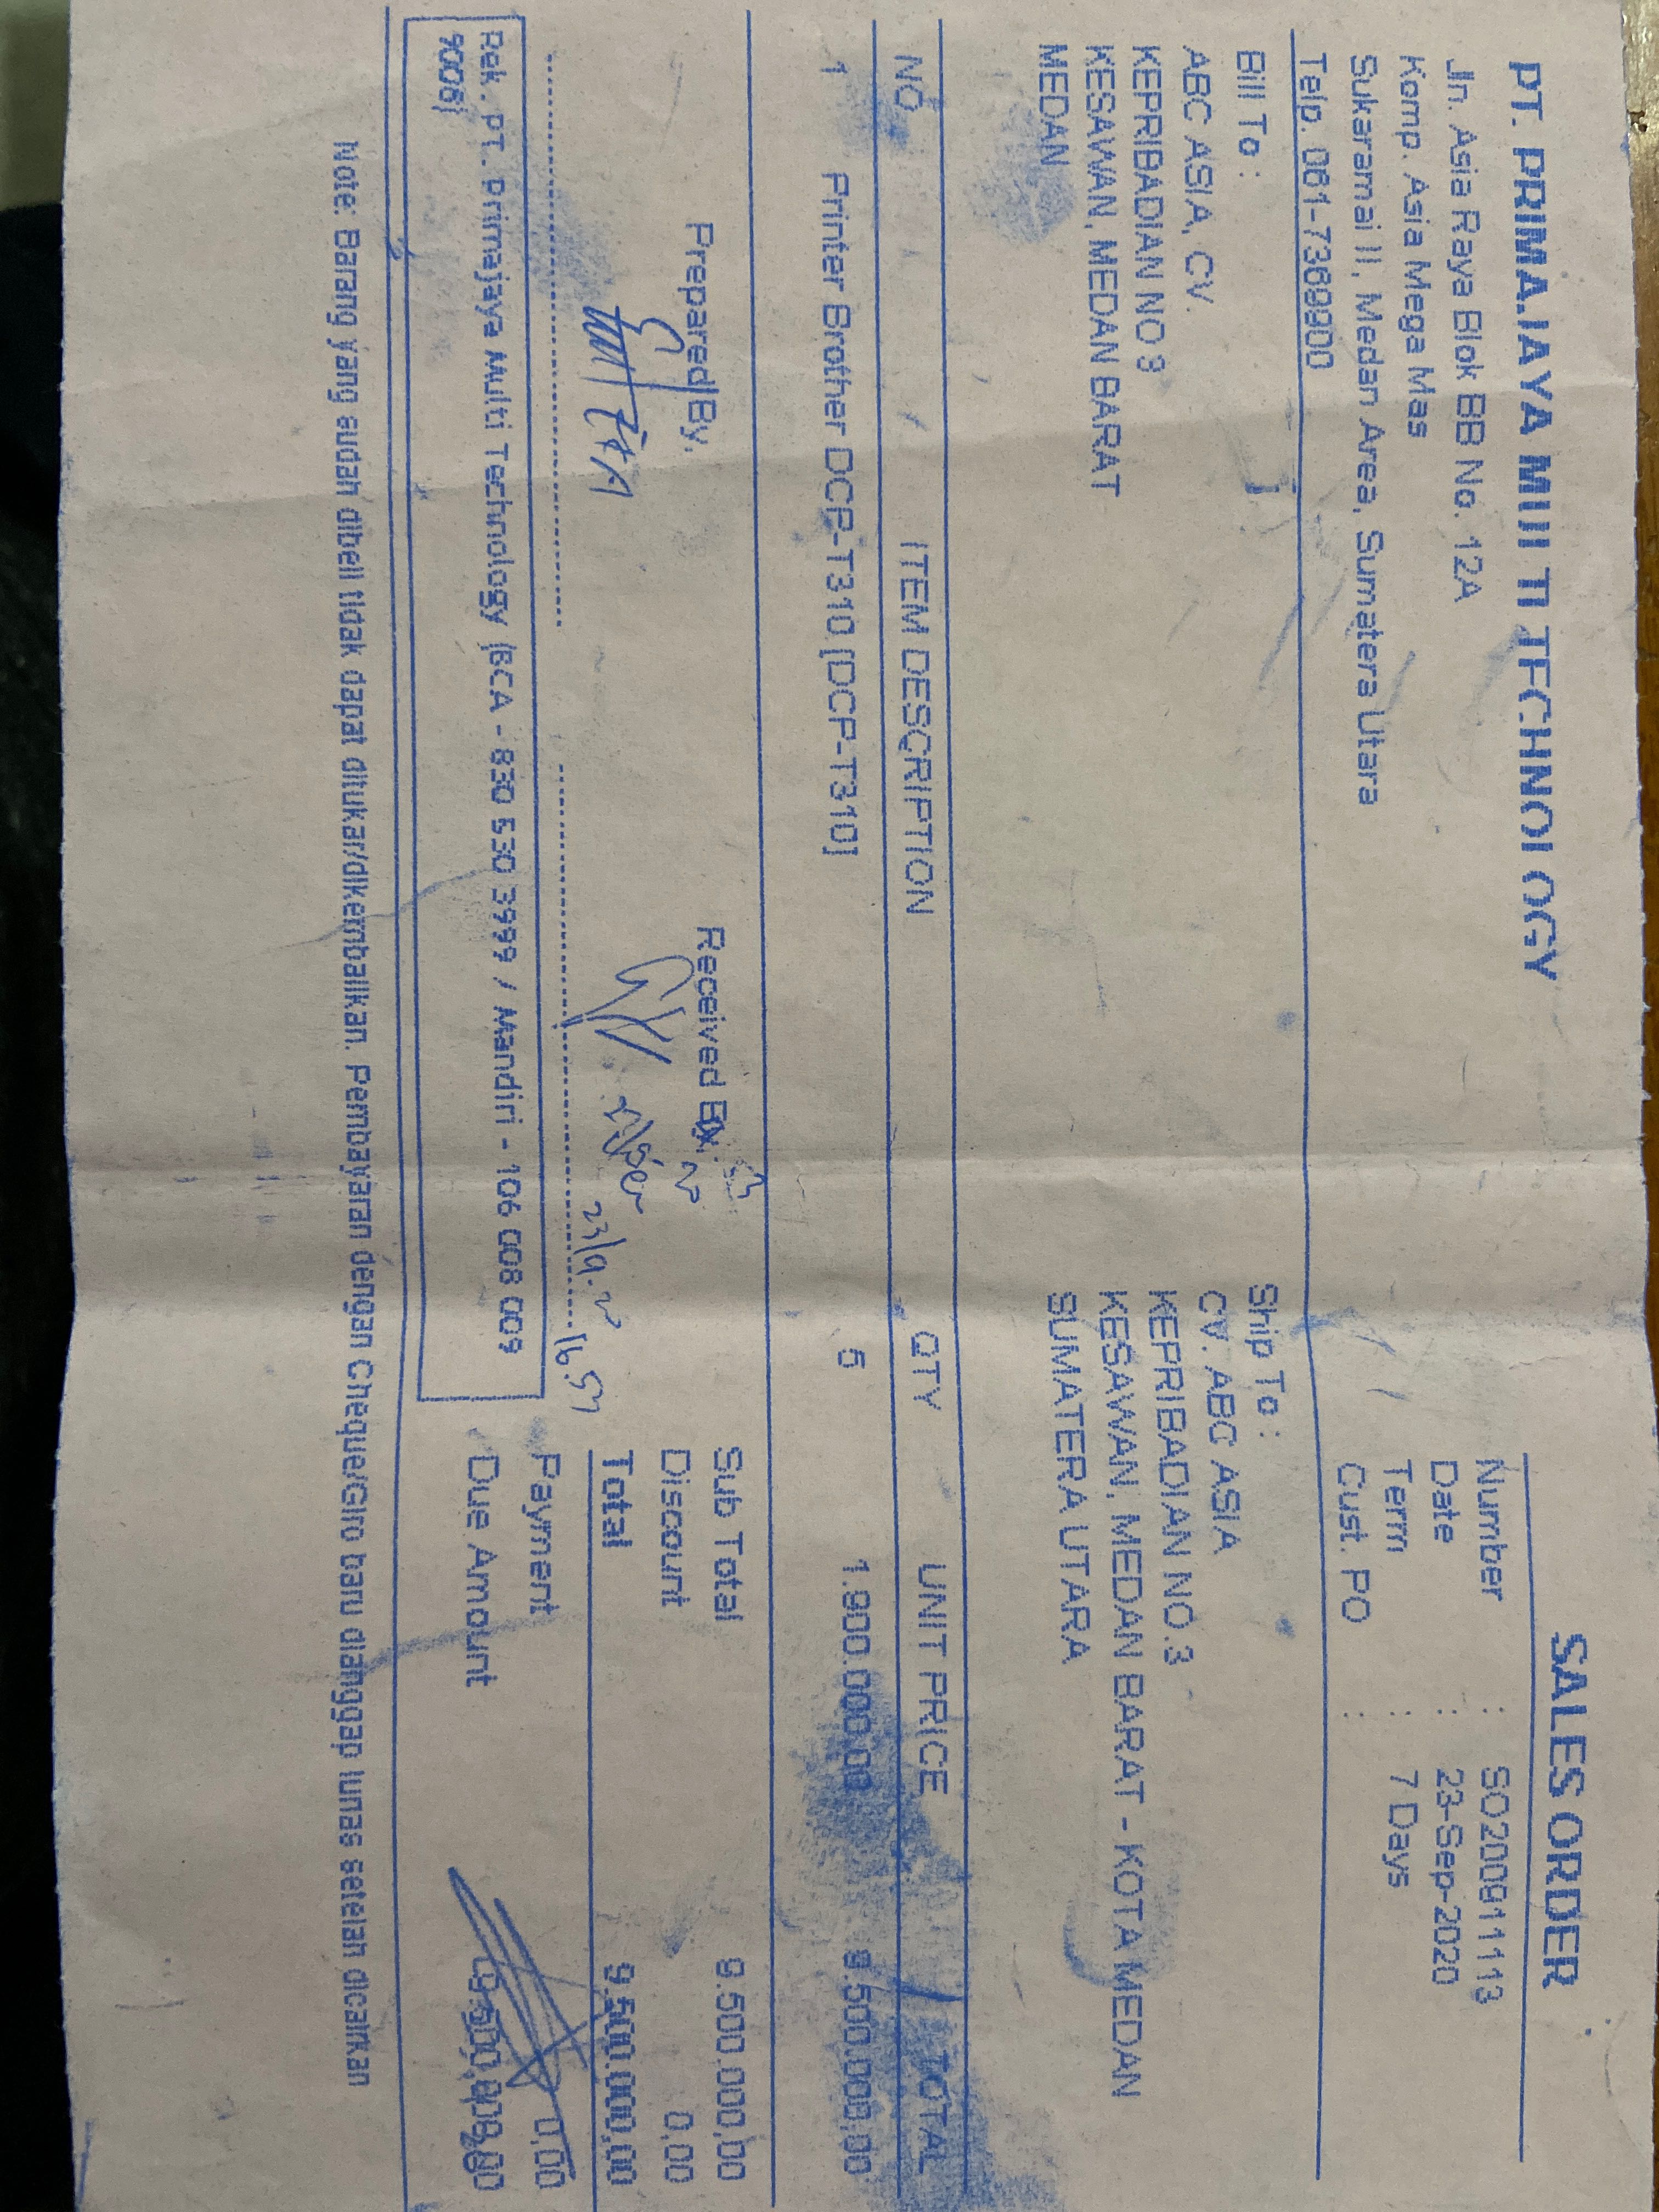 PT. PRIMAJAYA MULTI TECHNOLOGY
SALES ORDER
Jln. Asia Raya Blok BB No. 12A
Komp. Asia Mega Mas
Sukaramai II, Medan Area, Sumatera Utara
Telp. 061-7369900
Number : SO200911113
Date : 23-Sep-2020
Term : 7 Days
Cust. PO :
Bill To :
ABC ASIA, CV.
KEPRIBADIAN NO 3
KESAWAN, MEDAN BARAT
MEDAN
Ship To :
CV. ABC ASIA
KEPRIBADIAN NO.3
KESAWAN, MEDAN BARAT - KOTA MEDAN
SUMATERA UTARA
NO ITEM DESCRIPTION QTY UNIT PRICE TOTAL
1 Printer Brother DCP-T310 [DCP-T310] 5 1.900.000,00 9.500.000,00
Prepared By, Received By,
23/9.20 16.57
Sub Total 9.500.000,00
Discount 0,00
Total 9.500.000,00
Payment 0,00
Due Amount 9.500.000,00
Rek. PT. Primajaya Multi Technology (BCA - 830 530 3999 / Mandiri - 106 008 009
9008)
Note: Barang yang sudah dibeli tidak dapat ditukar/dikembalikan. Pembayaran dengan Cheque/Giro baru dianggap lunas setelah dicairkan